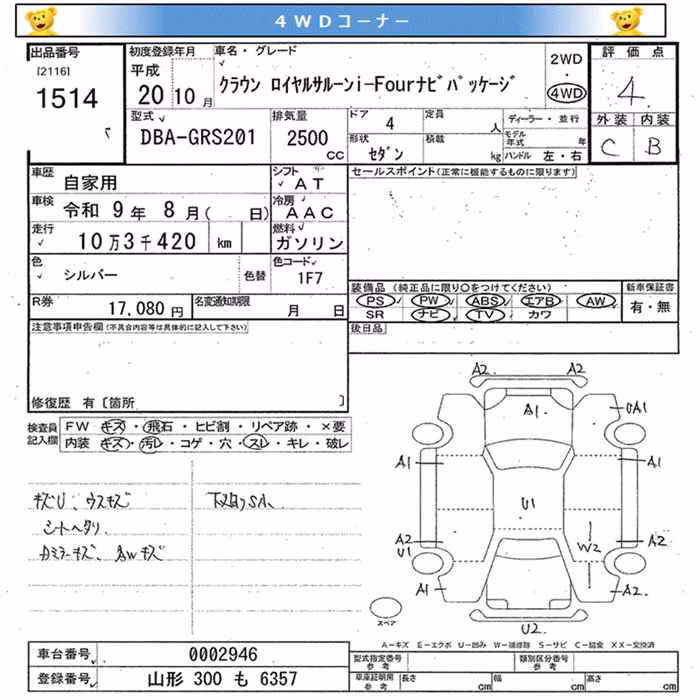 4WDコーナー
出品番号
[2116]
1514
初度登録年月
平成
20 10月
車名・グレード
クラウン ロイヤルサルーンi-Fourナビパッケージ
2WD
・
4WD
評価点
4
外装 内装
C B
型式
DBA-GRS201
排気量
2500
cc
ドア
4
定員
人
ディーラー・並行
モデル年式 年
形状
セダン
積載
kg
ハンドル 左・右
車歴
自家用
シフト
AT
車検
令和 9年 8月( 日)
冷房
AAC
走行
10万3千420 km
燃料
ガソリン
色
シルバー
色替
色コード
1F7
R券
17,080円
名変通知期限
月 日
セールスポイント(正常に機能するものに限ります)
装備品 (純正品に限り○をつけてください)
PS PW ABS エアB AW
SR ナビ TV カワ
新車保証書
有・無
後日品
注意事項申告欄(不具合内容等は具体的に記入して下さい)
修復歴 有〔箇所 〕
検査員記入欄
FW キズ・飛石・ヒビ割・リペア跡・×要
内装 キズ・汚レ・コゲ・穴・スレ・キレ・破レ
キズU、ウスキズ
シートヘタリ
Dミラーキズ、AWキズ
下スリSA、
A2 A2
A1
UA1
A1 A1
U1
A2
U1
W2
A2
A1
U2
スペア
A-キズ E-エクボ U-凹み W-補修跡 S-サビ C-腐食 XX-交換済
車台番号
0002946
登録番号
山形 300 も 6357
型式指定番号
参考
類別区分番号
参考
車庫証明用
参考
長さ cm
幅 cm
高さ cm